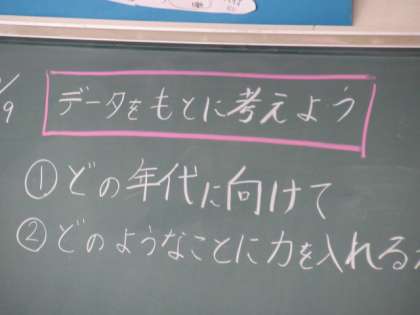 データをもとに考えよう
9
①どの年代に向けて
②どのようなことに力を入れる